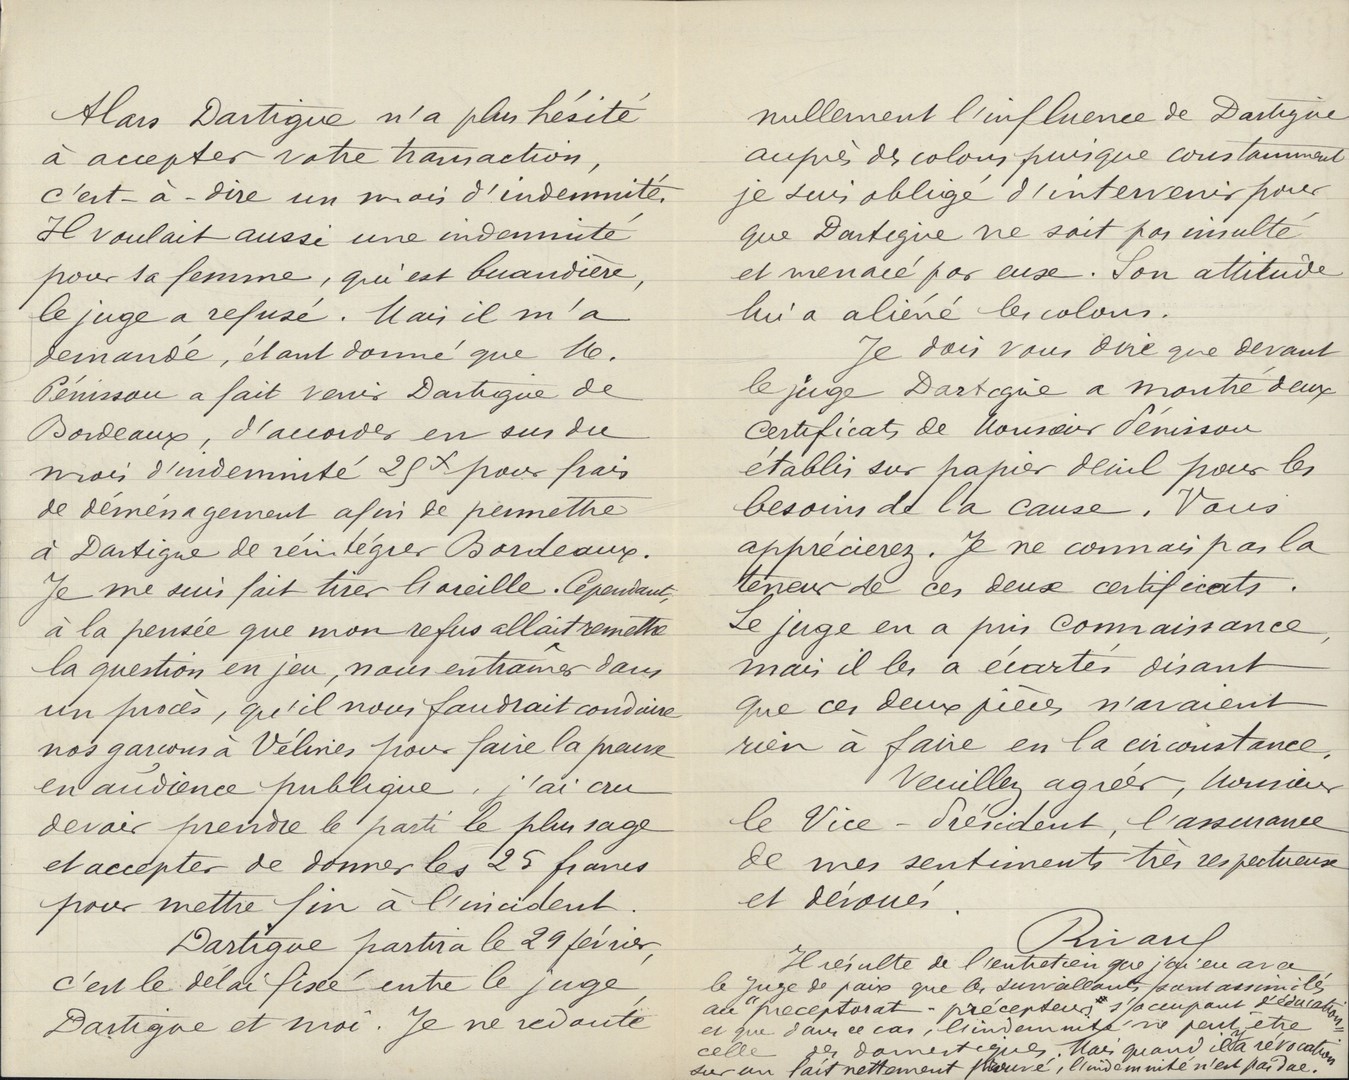 Alors Dartigue n'a plus hésité
à accepter votre transaction,
c'est-à-dire un mois d'indemnité.
Il voulait aussi une indemnité
pour sa femme, qui est buandière,
le juge a refusé. Mais il m'a
demandé, étant donné que M.
Pénisson a fait venir Dartigue de
Bordeaux, d'accorder en sus du
mois d'indemnité 25 f pour frais
de déménagement afin de permettre
à Dartigue de réintégrer Bordeaux.
Je me suis fait tirer l'oreille. Cependant,
à la pensée que mon refus allait remettre
la question en jeu, nous entraîner dans
un procès, qu'il nous faudrait conduire
nos garçons à Vélines pour faire la preuve
en audience publique, j'ai cru
devoir prendre le parti le plus sage
et accepter de donner les 25 francs
pour mettre fin à l'incident.
Dartigue partira le 29 février,
c'est le délai fixé entre le juge,
Dartigue et moi. Je ne redoute
nullement l'influence de Dartigue
auprès des colons puisque constamment
je suis obligé d'intervenir pour
que Dartigue ne soit pas insulté
et menacé par eux. Son attitude
lui a aliéné les colons.
Je dois vous dire que devant
le juge Dartigue a montré deux
certificats de Monsieur Pénisson
établis sur papier deuil pour les
besoins de la cause. Vous
apprécierez. Je ne connais pas la
teneur de ces deux certificats.
Le juge en a pris connaissance,
mais il les a écartés disant
que ces deux pièces n'avaient
rien à faire en la circonstance.
Veuillez agréer, Monsieur
le Vice-Président, l'assurance
de mes sentiments très respectueux
et dévoués.
Rivaud
Il résulte de l'entretien que j'ai eu avec
le juge de paix que les surveillants sont assimilés
au "préceptorat - précepteurs" s'occupant d'éducation
et que dans ce cas, l'indemnité ne peut être
celle des domestiques. Mais quand il y a révocation
sur un fait nettement prouvé, l'indemnité n'est pas due.